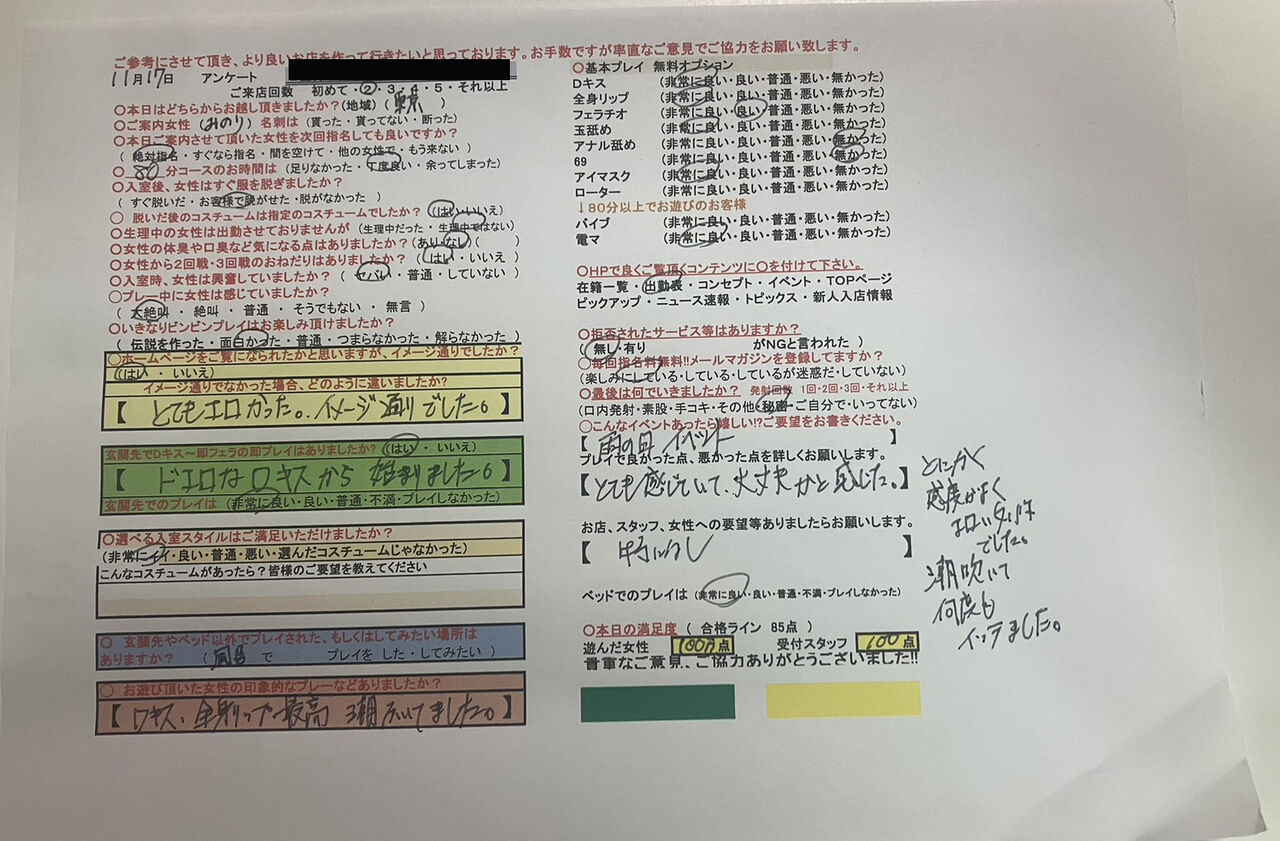 ご参考にさせて頂き、より良いお店を作って行きたいと思っております。お手数ですが率直なご意見でご協力をお願い致します。
11月17日 アンケート
ご来店回数 初めて・2・3・4・5・それ以上
○本日はどちらからお越し頂きましたか?(地域) ( 東京 )
○ご案内女性 (みのり) 名刺は (貰った・貰ってない・断った)
○本日ご案内させて頂いた女性を次回指名しても良いですか?
( 絶対指名・すぐなら指名・間を空けて・他の女性で・もう来ない )
○ 80分コースのお時間は (足りなかった・丁度良い・余ってしまった)
○入室後、女性はすぐ服を脱ぎましたか?
( すぐ脱いだ・お客様で脱がせた・脱がなかった )
○ 脱いだ後のコスチュームは指定のコスチュームでしたか? (はい・いいえ)
○生理中の女性は出勤させておりませんが (生理中だった・生理中ではない)
○女性の体臭や口臭など気になる点はありましたか?(あり・なし) ( )
○女性から2回戦・3回戦のおねだりはありましたか? ( はい・いいえ )
○入室時、女性は興奮していましたか? ( ヤバい・普通・していない )
○プレー中に女性は感じていましたか?
( 大絶叫 ・ 絶叫 ・ 普通 ・ そうでもない ・ 無言 )
○いきなりビンビンプレイはお楽しみ頂けましたか?
( 伝説を作った・面白かった・普通・つまらなかった・解らなかった )
○ホームページをご覧になられたかと思いますが、イメージ通りでしたか?
(はい ・ いいえ)
イメージ通りでなかった場合、どのように違いましたか?
【 とてもエロかった。イメージ通りでした。 】
玄関先でDキス〜即フェラの即プレイはありましたか? (はい ・ いいえ)
【 ドエロなDキスから 始まりました。 】
玄関先でのプレイは (非常に良い・良い・普通・不満・プレイしなかった)
○選べる入室スタイルはご満足いただけましたか?
(非常にイイ・良い・普通・悪い・選んだコスチュームじゃなかった)
こんなコスチュームがあったら?皆様のご要望を教えてください
○ 玄関先やベッド以外でプレイされた、もしくはしてみたい場所は
ありますか? ( で プレイを した・してみたい )
○ お遊び頂いた女性の印象的なプレーなどありましたか?
【 Dキス、全身リップ最高 潮ふいてました。 】
○基本プレイ 無料オプション
Dキス (非常に良い・良い・普通・悪い・無かった)
全身リップ (非常に良い・良い・普通・悪い・無かった)
フェラチオ (非常に良い・良い・普通・悪い・無かった)
玉舐め (非常に良い・良い・普通・悪い・無かった)
アナル舐め (非常に良い・良い・普通・悪い・無かった)
69 (非常に良い・良い・普通・悪い・無かった)
アイマスク (非常に良い・良い・普通・悪い・無かった)
ローター (非常に良い・良い・普通・悪い・無かった)
↓80分以上でお遊びのお客様
バイブ (非常に良い・良い・普通・悪い・無かった)
電マ (非常に良い・良い・普通・悪い・無かった)
○HPで良くご覧頂くコンテンツに○を付けて下さい。
在籍一覧・出勤表・コンセプト・イベント・TOPページ
ピックアップ・ニュース速報・トピックス・新人入店情報
○拒否されたサービス等はありますか?
( 無し・有り がNGと言われた )
○毎回指名料無料!!メールマガジンを登録してますか?
(楽しみにしている・している・しているが迷惑だ・していない)
○最後は何でいきましたか? 発射回数 1回・2回・3回・それ以上
(口内発射・素股・手コキ・その他・秘密・ご自分で・いってない)
○こんなイベントあったら嬉しい!?ご要望をお書きください。
【 雨の日 イベント 】
プレイで良かった点、悪かった点を詳しくお願いします。
【とても感じていて、大丈夫かと感じた。】
とにかく
感度がよく
エロい女性
でした。
潮吹いて
何度も
イッテました。
お店、スタッフ、女性への要望等ありましたらお願いします。
【 特になし 】
ベッドでのプレイは (非常に良い・良い・普通・不満・プレイしなかった)
○本日の満足度 ( 合格ライン 85点 )
遊んだ女性 点 受付スタッフ 100点
貴重なご意見、ご協力ありがとうございました!!